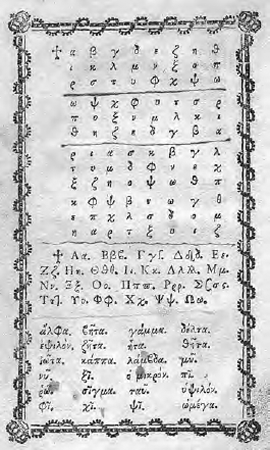 ✝ α β γ δ ε ζ η θ
ι κ λ μ ν ξ ο π
ρ σ τ υ φ χ ψ ω
ω ψ χ φ υ τ σ ρ
π ο ξ ν μ λ κ ι
θ η ζ ε δ γ β α
ρ ι α σ κ β γ λ
τ υ μ δ φ ν ε χ
ξ ζ η ο ψ ω θ π
ε π κ λ σ δ ο μ
η α ρ τ ξ
✝ Αα. Ββϐ. Γγ. Δδ. Εε.
Ζζ Ηη. Θθϑ. Ιι. Κκ. Λλ. Μμ.
Νν. Ξξ. Οο. Ππϖ. Ρρ. Σσς.
Ττ. Υυ. Φφ. Χχ. Ψψ. Ωω.
ἄλφα. βῆτα. γάμμα. δέλτα.
ἐψιλόν. ζῆτα. ἦτα. θῆτα.
ἰῶτα. κάππα. λάμβδα. μῦ.
νῦ. ξῖ. ὀ μικρόν. πῖ.
ῥῶ. σῖγμα. ταῦ. ὐψιλόν.
φῖ. χῖ. ψῖ. ὠμέγα.